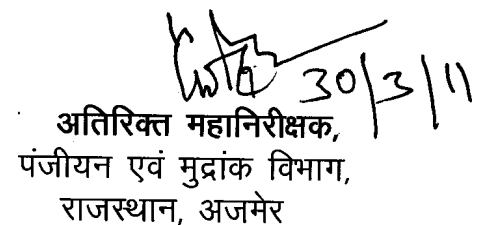 30/3/11
अतिरिक्त महानिरीक्षक,
पंजीयन एवं मुद्रांक विभाग,
राजस्थान, अजमेर